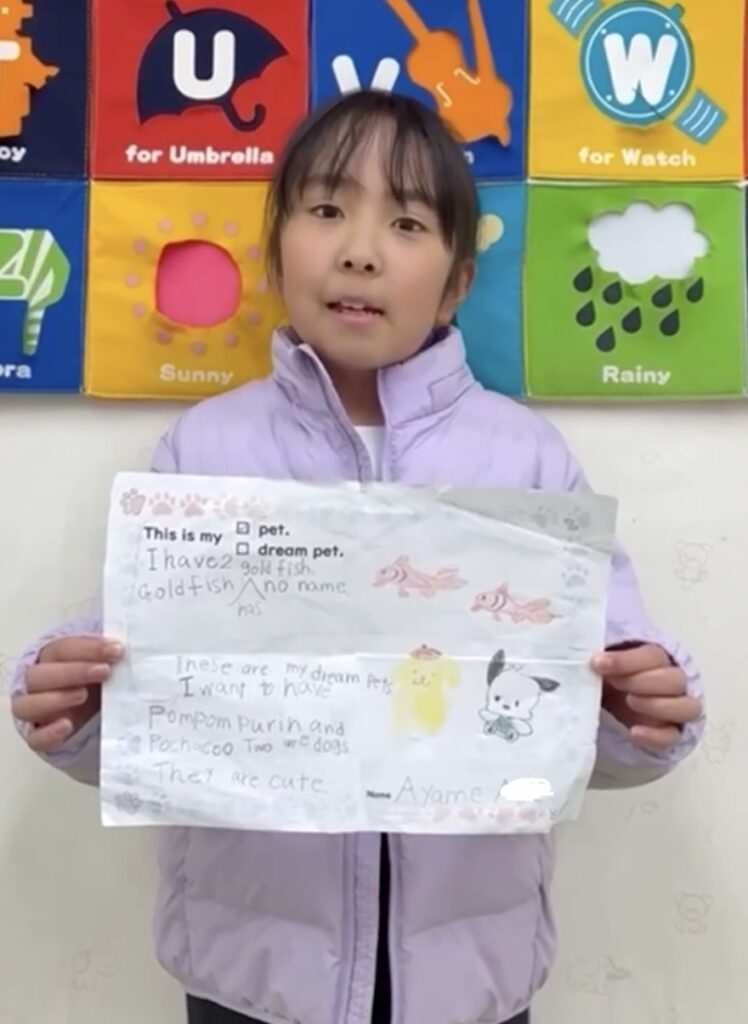 U
V
W
oy
for Umbrella
n
for Watch
ora
Sunny
Rainy
This is my ☑ pet.
☐ dream pet.
I have 2 gold fish.
Goldfish has no name
These are my dream pets
I want to have
Pompom purin and
Pochacco Two are dogs
They are cute.
Name Ayame A